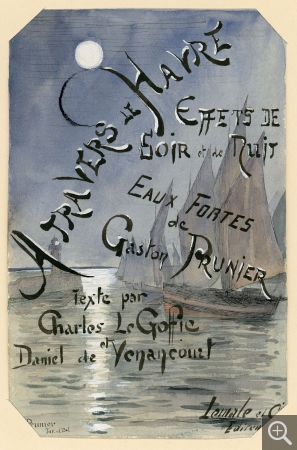 A TRAVERS LE HAVRE
EFFETS DE
SOIR et de NUIT
EAUX FORTES
de
Gaston PRUNIER
Texte par
Charles Le Goffic
et
Daniel de Venancourt
Lemale et Cie
Editeurs
Prunier